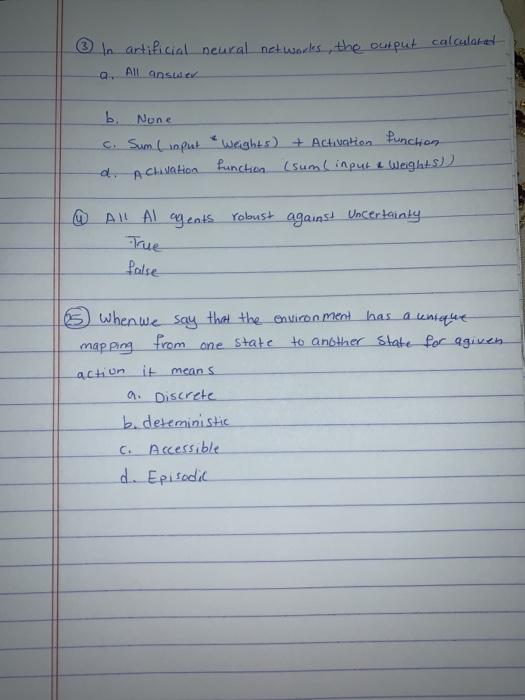 ③ In artificial neural networks, the output calculated
a. All answer
b. None
c. Sum (input * weights) + Activation function
d. Activation function (sum(input & weights))
④ All AI agents robust against Uncertainty
True
false
25 When we say that the environment has a unique
mapping from one state to another state for agiven
action it means
a. Discrete
b. deteministic
c. Accessible
d. Episodic